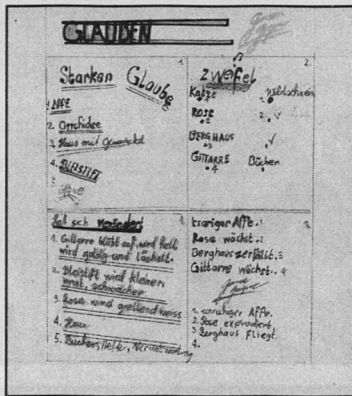 GLAUDEN
1.
Starken Glaube
1. AFFE
2. Orrchidee
3. Haus mit
4. BLEISTIFT
5.
2.
Zweifel
Katze Wildschwein
ROSE
BERGHAUS
GITTARRE Bücher
hat sich verändert
1. Gittarre bläst auf, wird hell
wird goldig und lächelt.
2. Bleistift wird kleiner
schwächer
3. Rose wird grellend weiss
4. Haus
5. Bücher, Hefte, Verantwortung
trauriger Affe.
Rose wächst.
Berghaus zerfällt.
Gittarre wächst.
1. unruhiger Affe.
2. Rose explodiert
3. Berghaus fliegt.
4.